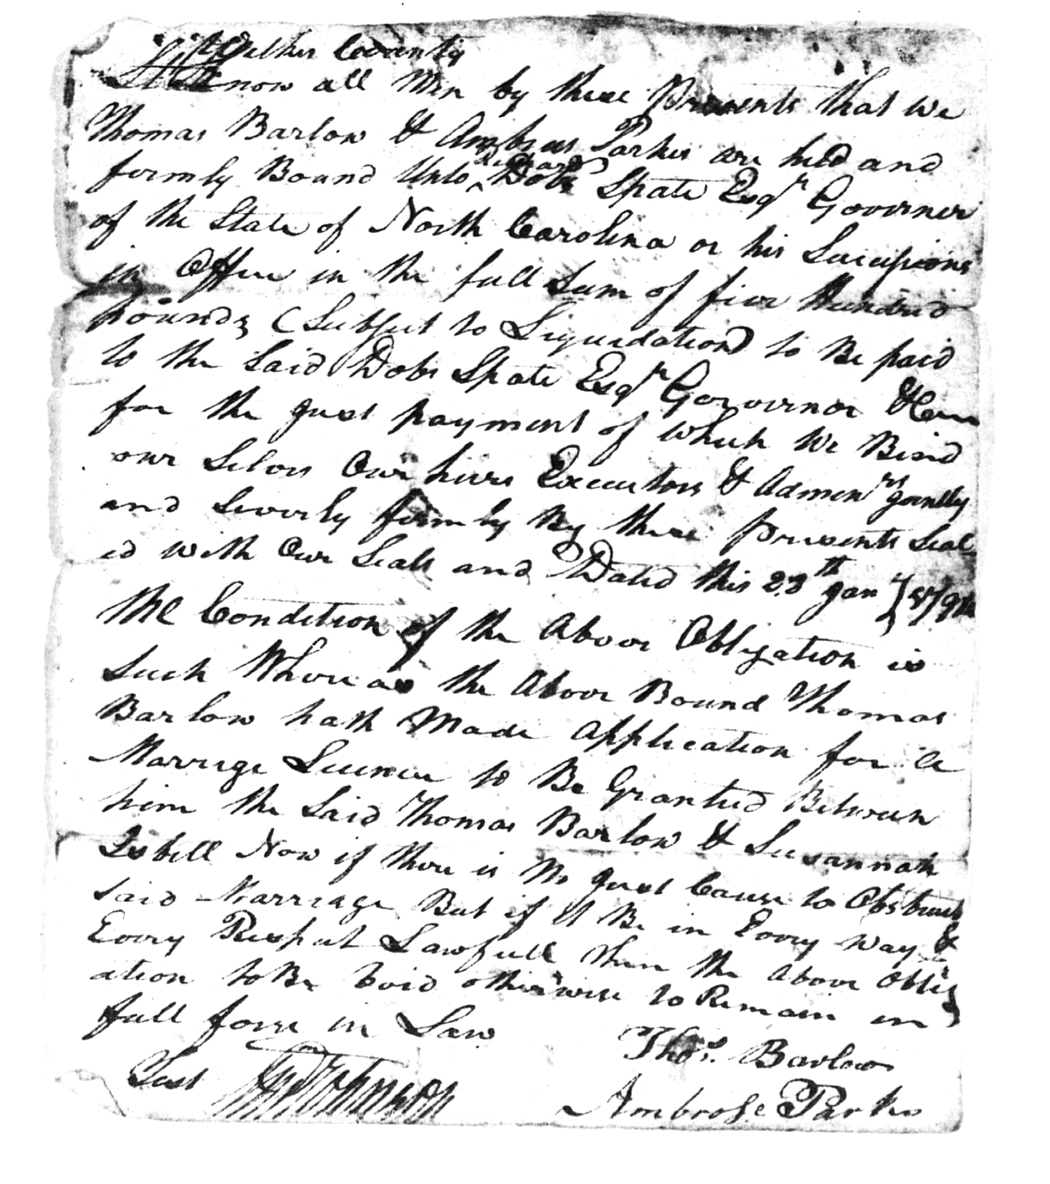 County
Know all Men by these Presents that we
Thomas Barlow & Ambrus Parkes are held and
formly Bound Unto Richard Dobs Spate Esqr Governer
of the State of North Carolina or his Sucessions
in Office in the full Sum of five Hundred
pounds (Subject to Liquidation) to Be paid
to the Said Dobs Spate Esqr Governor
for the just payment of which We Bind
our Selves Our heirs Executors & Admenrs joantly
and Severly formly By these Presents Seal
ed with Our Seals and Dated this 23th Jan
the Condition of the Above Obligation is
Such Whereas the Above Bound Thomas
Barlow hath Made Application for a
Marrige Licence to Be Granted Between
him the Said Thomas Barlow & Susannah
Isbell Now if there is No just Cause to Obstruct
Said Marriage But if it Be in Every way &
Every Respect Lawfull then the Above Oblig
ation to Be Void otherwise to Remain in
full force in Law
Thos. Barlow
Test
Ambrose Parks